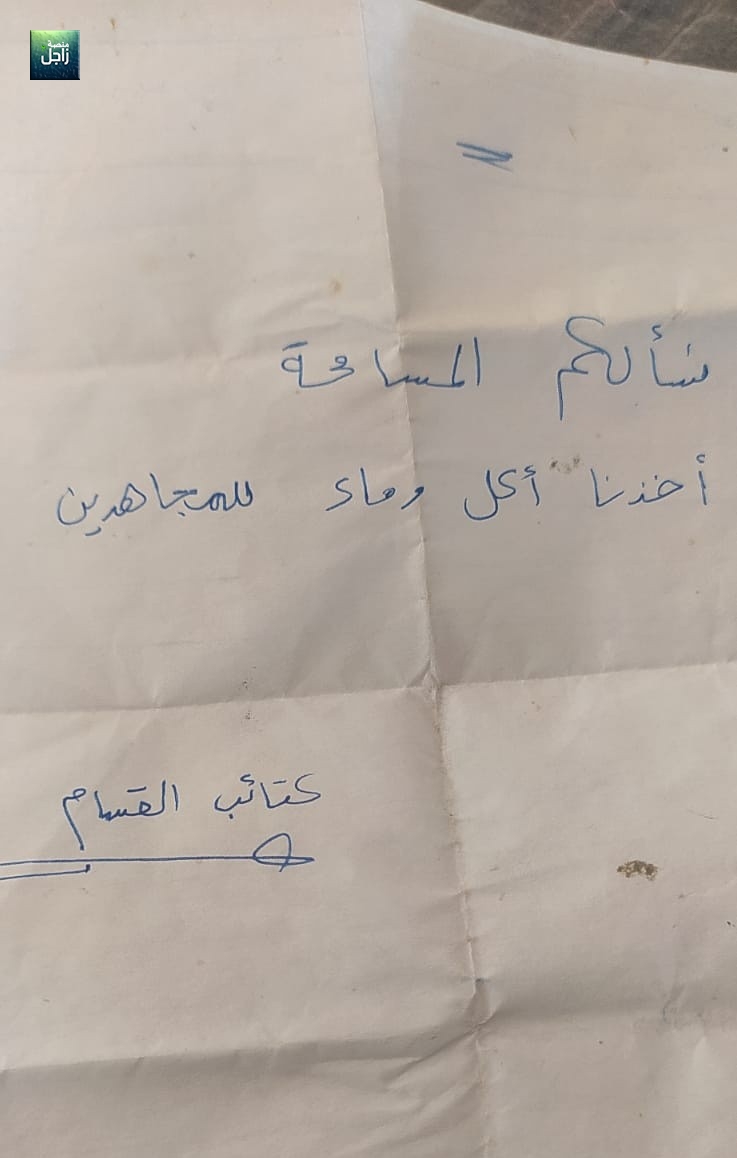 منصة
زاجل
نسألكم المسامحة
أخذنا أكل وماء للمجاهدين
كتائب القسام